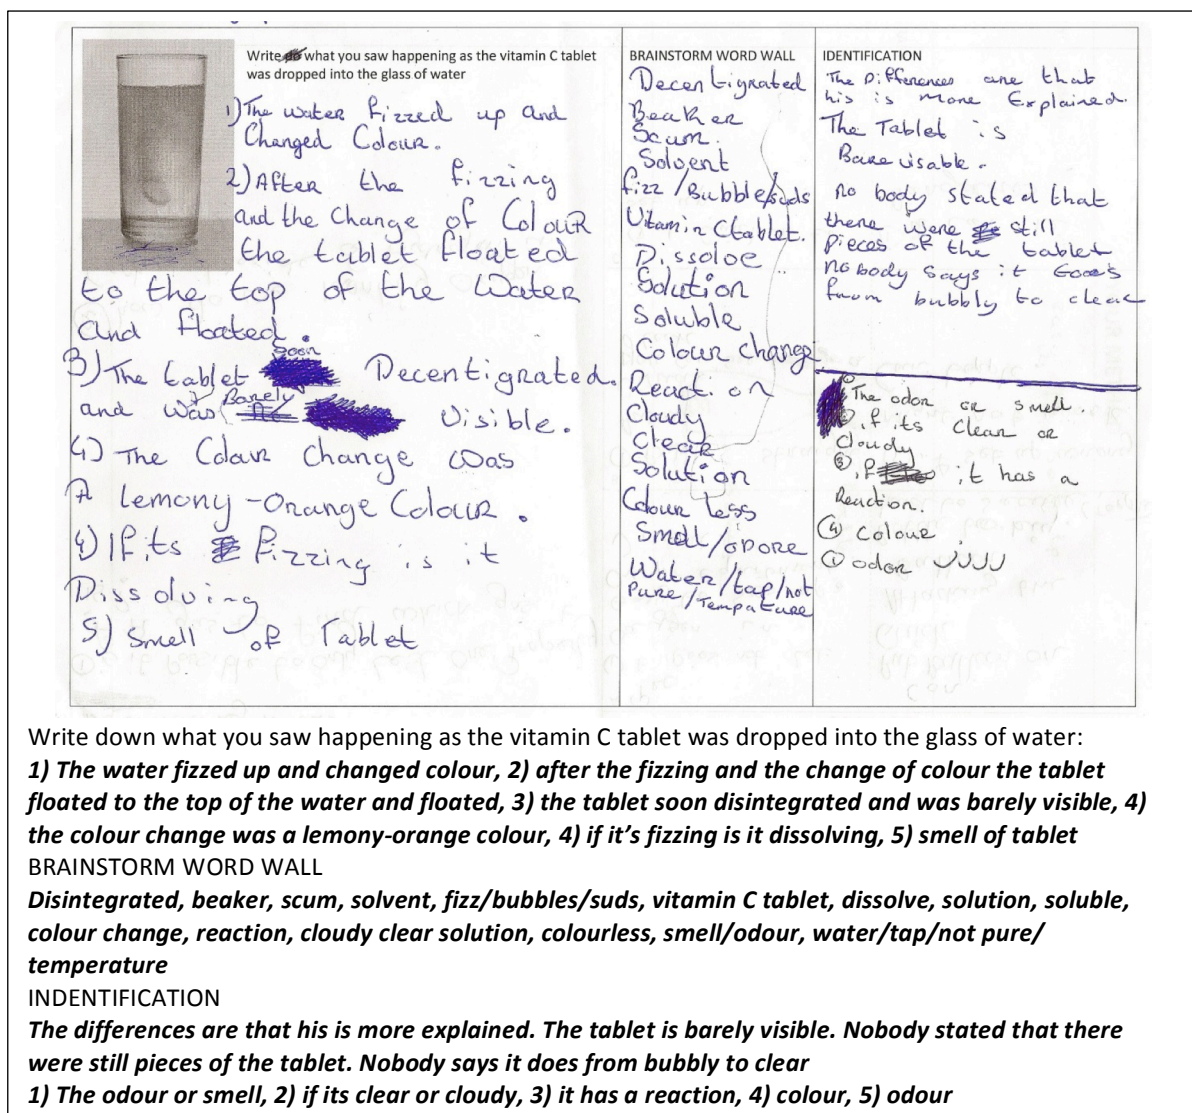 Write what you saw happening as the vitamin C tablet
was dropped into the glass of water
1) The water fizzed up and
Changed Colour.
2) After the fizzing
and the Change of Colour
the tablet floated
to the top of the Water
and floated.
3) The tablet soon Decentigrated.
and was Barely Visible.
4) The Colour Change was
A lemony-Orange Colour.
4) If its fizzing is it
Dissolving
5) Smell of Tablet
BRAINSTORM WORD WALL
Decentigrated
Beaker
Scum.
Solvent
fizz/Bubble/suds
Vitamin C tablet.
Dissoloe
Solution
Soluble
Colour change
Reaction
Cloudy
Clear
Solution
Colour less
Smell/odore
Water/tap/not
pure/Tempature
IDENTIFICATION
The Differences are that
his is more Explained.
The Tablet is
Bare visable.
no body stated that
there were still
pieces of the tablet
no body says it Goes
from bubbly to clear
The odor or smell.
② if its clear or
cloudy
③ if it has a
Reaction.
④ Colour
① odor
Write down what you saw happening as the vitamin C tablet was dropped into the glass of water:
1) The water fizzed up and changed colour, 2) after the fizzing and the change of colour the tablet
floated to the top of the water and floated, 3) the tablet soon disintegrated and was barely visible, 4)
the colour change was a lemony-orange colour, 4) if it's fizzing is it dissolving, 5) smell of tablet
BRAINSTORM WORD WALL
Disintegrated, beaker, scum, solvent, fizz/bubbles/suds, vitamin C tablet, dissolve, solution, soluble,
colour change, reaction, cloudy clear solution, colourless, smell/odour, water/tap/not pure/
temperature
INDENTIFICATION
The differences are that his is more explained. The tablet is barely visible. Nobody stated that there
were still pieces of the tablet. Nobody says it does from bubbly to clear
1) The odour or smell, 2) if its clear or cloudy, 3) it has a reaction, 4) colour, 5) odour